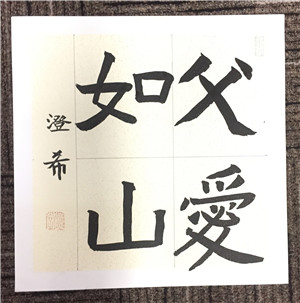 父愛
如山
澄希